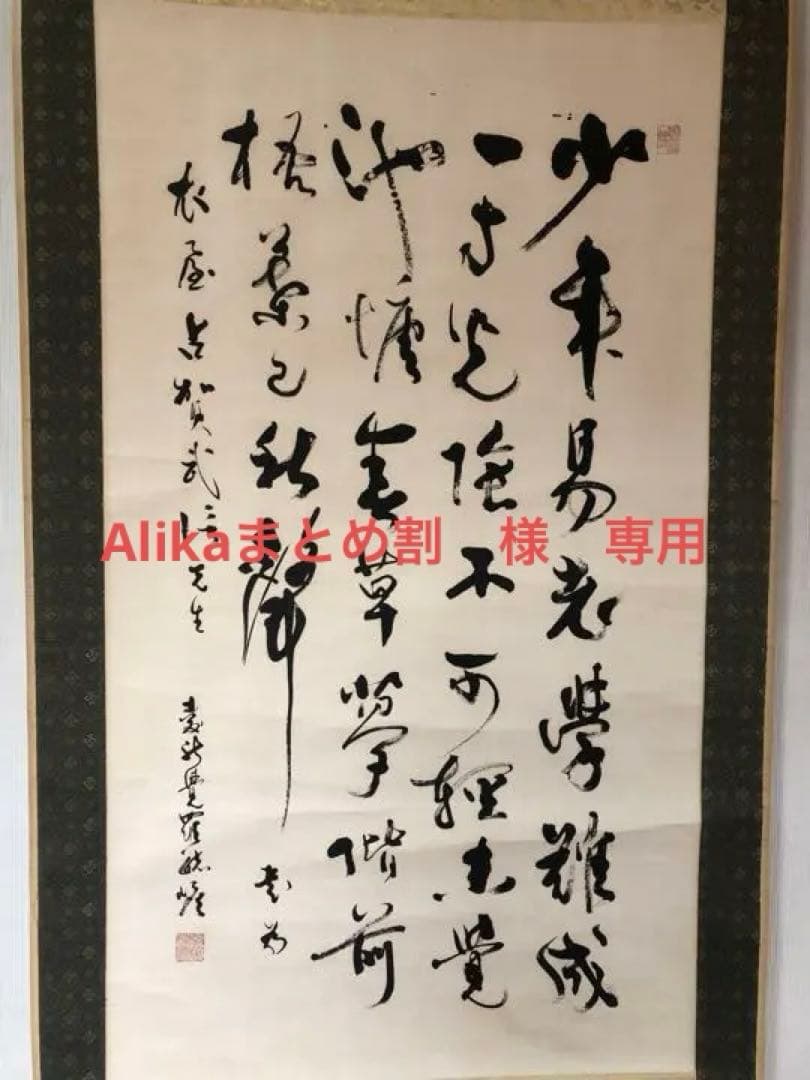 少年易老學難成
一寸光陰不可輕未覺
池塘春草夢階前
梧葉已秋聲 書為
古賀武 先生 愛新覺羅毓嶦
Alikaまとめ割　様　専用